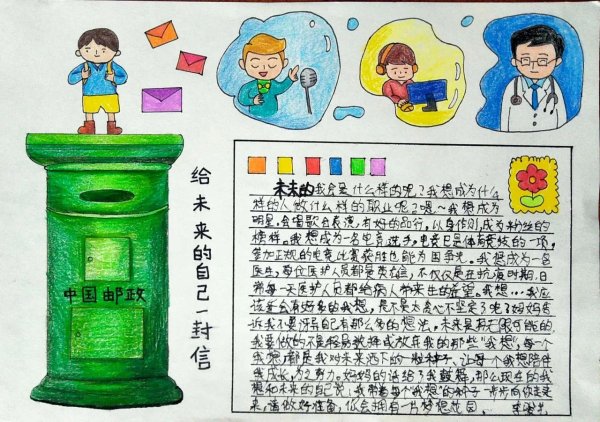 给未来的自己一封信
中国邮政
未来的我会是什么样的呢？我想成为什么
样的人做什么样的职业呢？嗯～我想成为
明星，会唱歌会表演，有好的品行，以身作则，成为粉丝的
榜样。我想成为一名电竞选手，电竞已是体育竞技的一项，
参加正规的电竞比赛获胜也能为国争光。我想成为一名
医生，每位医护人员都是英雄，不仅仅是在抗疫时期，日
常每一天医护人员都给病人带来生的希望。我想…我应
该还会有好多的我想，是不是太贪心不坚定了呢？妈妈告
诉我不要评判自己有那么多的想法，未来是有无限可能的
我要做的不是轻易放弃或放任我的那些“我想”，每一个
我想，都是我对未来洒下的一粒种子，让每个我想陪伴
我成长，努力。妈妈的话给了我鼓舞，那么现在的我
想和未来的自己说：我带着每个“我想”的种子一步步向你走
来，请做好准备，你会拥有一片梦想花园。